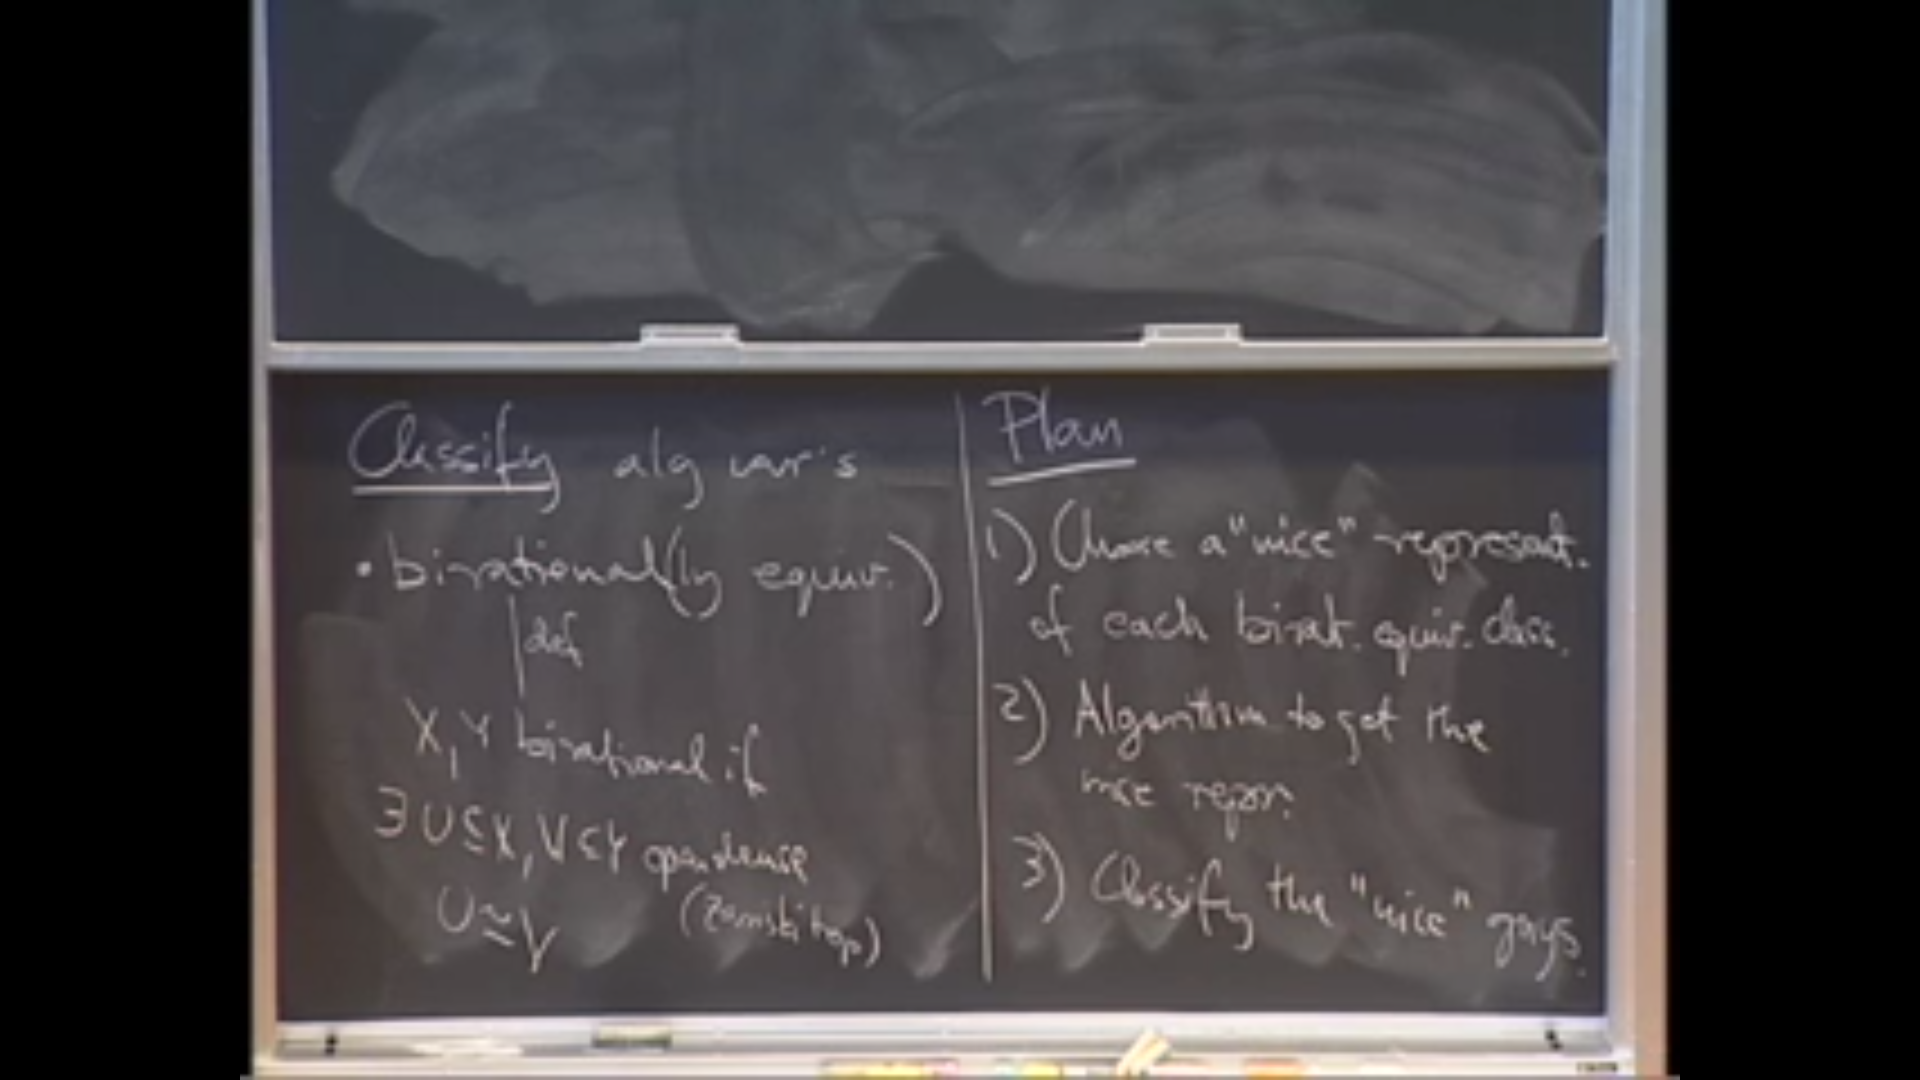 Classify alg var's
• birational(ly equiv.)
def
X, Y birational if
∃ U ⊆ X, V ⊆ Y open dense
U ≃ V (Zariski top)
Plan
1) Choose a "nice" represent.
of each birat. equiv. class.
2) Algorithm to get the
nice repr.
3) Classify the "nice" guys.